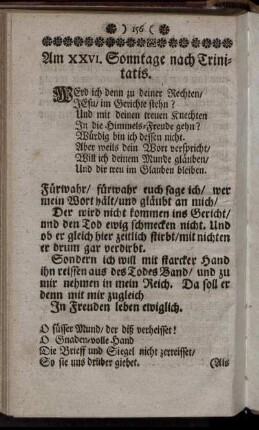 ) 156 (
Am XXVI. Sonntage nach Trini-
tatis.
WErd ich denn zu deiner Rechten/
JEsu/ im Gerichte stehn?
Und mit deinen treuen Knechten
In die Himmels-Freude gehn?
Würdig bin ich dessen nicht.
Aber weils dein Wort verspricht/
Will ich deinem Munde gläuben/
Und dir treu im Glauben bleiben.
Fürwahr/ fürwahr euch sage ich/ wer
mein Wort hält/und gläubt an mich/
Der wird nicht kommen ins Gericht/
und den Tod ewig schmecken nicht. Und
ob er gleich hier zeitlich stirbt/mit nichten
er drum gar verdirbt.
Sondern ich will mit starcker Hand
ihn reissen aus des Todes Band/ und zu
mir nehmen in mein Reich. Da soll er
denn mit mir zugleich
In Freuden leben ewiglich.
O süsser Mund/ der diß verheisset!
O Gnaden-volle Hand
Die Brieff und Siegel nicht zerreisset/
So sie uns drüber giebet. (Als